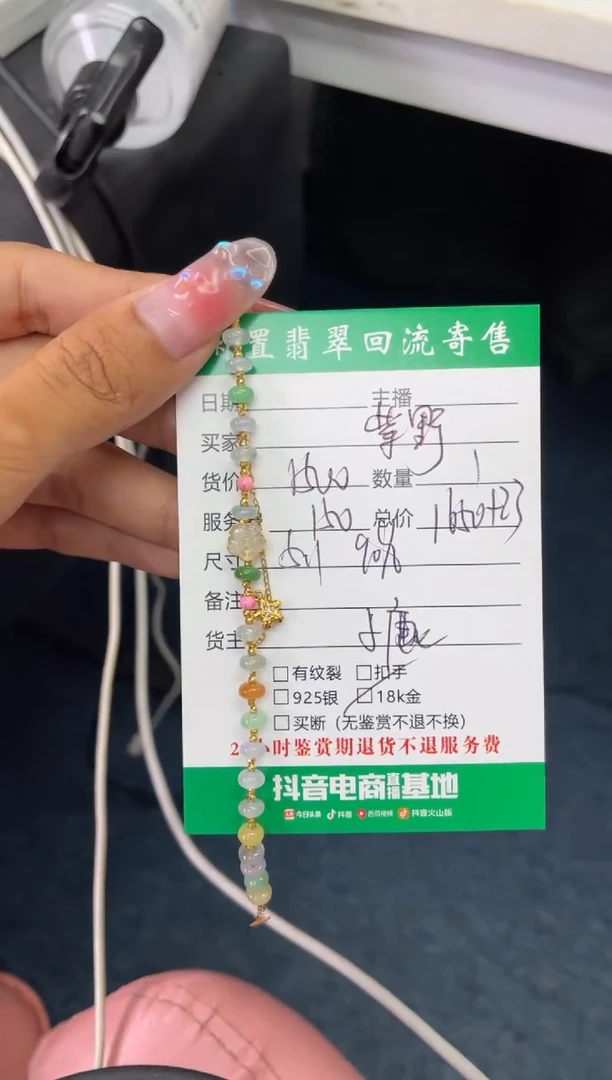 置翡翠回流寄售
日期 主播
买家 紫野
货价 1500 数量 1
服务 150 总价 1650+23
尺寸
备注
货主
□有纹裂 □扣手
□925银 □18k金
□买断（无鉴赏不退不换）
2 小时鉴赏期退货不退服务费
抖音电商直播基地
今日头条 抖音 西瓜视频 抖音火山版